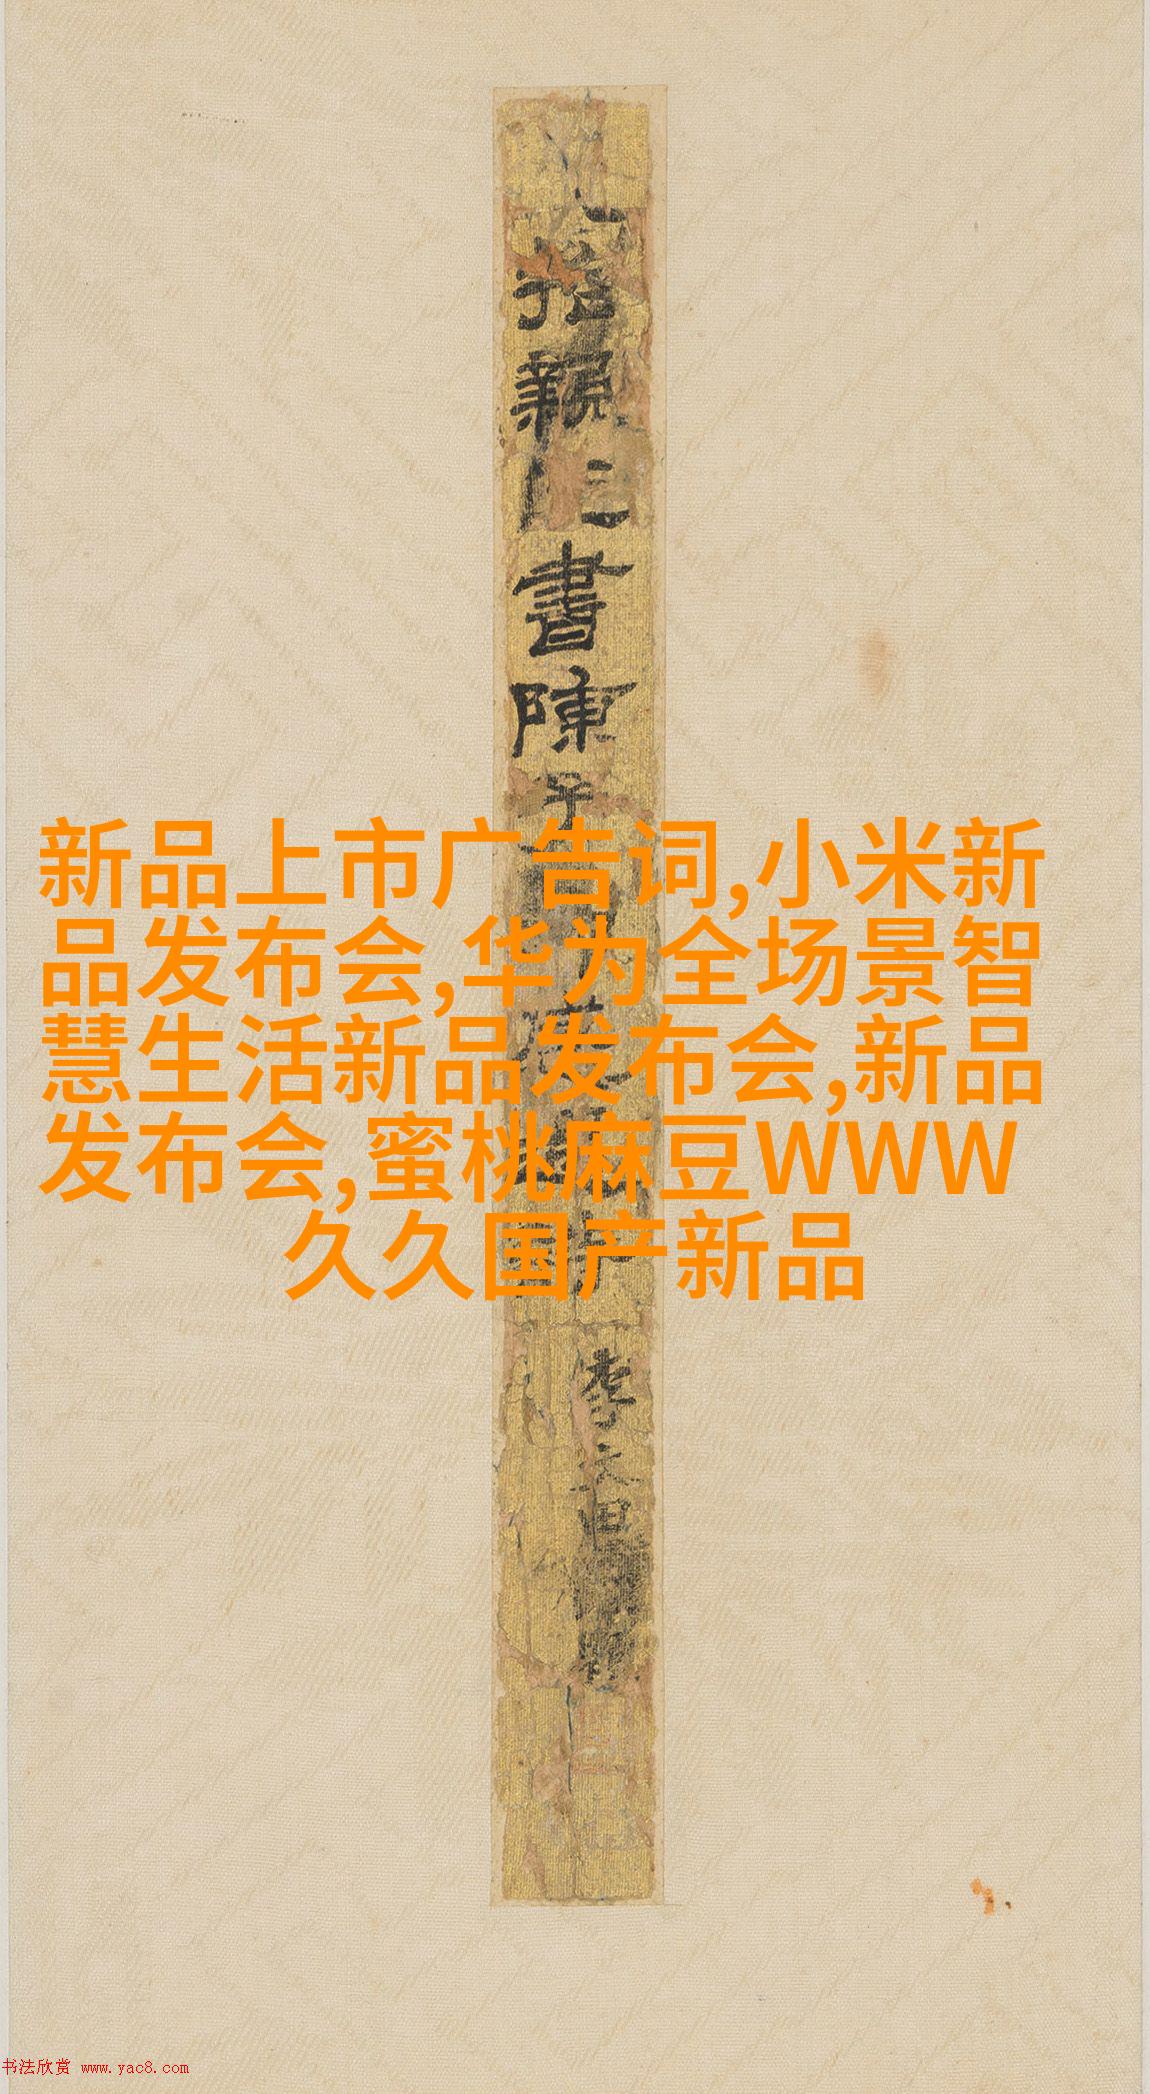 新品上市广告词,小米新
品发布会,华为全场景智
慧生活新品发布会,新品
发布会,蜜桃麻豆WWW
久久国产新品
書陳
李文田
书法欣赏 www.yac8.com